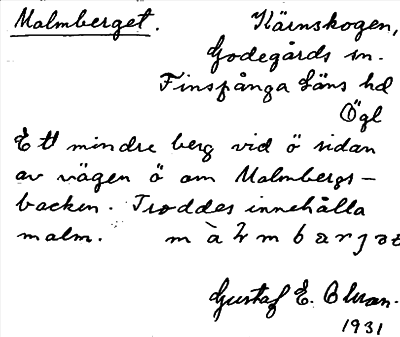 Malmberget. Kärnskogen,
Godegårds sn.
Finspånga läns hd
Ögl
Ett mindre berg vid ö sidan
av vägen ö om Malmbergs-
backen. Troddes innehålla
malm.
Gustaf E. Bluan.
1931